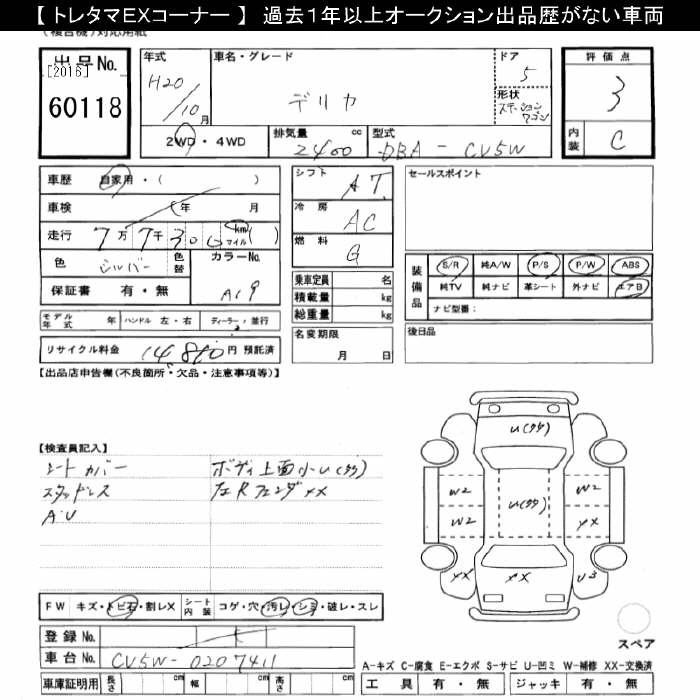 【 トレタマEXコーナー 】 過去1年以上オークション出品歴がない車両
出品No. 年式 車名・グレード ドア 評価点
[2016] H20 デリカ 5 3
60118 10月 形状 ステーションワゴン
2WD・4WD 排気量 2400 cc 型式 DBA-CV5W 内装 C
車歴 自家用・( ) シフト AT セールスポイント
車検 年 月 冷房 AC
走行 7万7千300 km マイル ( ) 燃料 G
色 シルバー 色替 カラーNo. A19
装備品 S/R 純A/W P/S P/W ABS
純TV 純ナビ 革シート 外ナビ エアB
ナビ型番:
保証書 有・無 乗車定員 名
積載量 kg
総重量 kg
モデル年式 年 ハンドル 左・右 ディーラー・並行 名変期限 月 日 後日品
リサイクル料金 14,810円 預託済
【出品店申告欄(不良箇所・欠品・注意事項等)】
【検査員記入】
シートカバー ボディ上面小U(多多)
スタッドレス 左Rフェンダ XX
A・U
U(多多)
W2 W2
U(多多)
W2 XX
XX XX U3
FW キズ・トビ石・割レX シート内装 コゲ・穴・汚レ・シミ・破レ・スレ
登録No.
車台No. CV5W-0207411
スペア
A-キズ C-腐食 E-エクボ S-サビ U-凹ミ W-補修 XX-交換済
車庫証明用 長さ cm 幅 cm 高さ cm 工具 有・無 ジャッキ 有・無